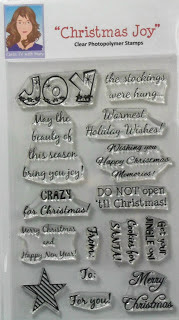 "Christmas Joy"
Clear Photopolymer Stamps
JOY
the stockings
were hung
May the
beauty of
this season
bring you joy!
Warmest
Holiday Wishes!
Wishing you
Happy Christmas
Memories!
CRAZY
for Christmas!
DO NOT open
'til Christmas!
Merry Christmas
and
Happy New Year!
From:
Cookies for
SANTA!
Get your
JINGLE on!
To:
For you!
Merry
Christmas